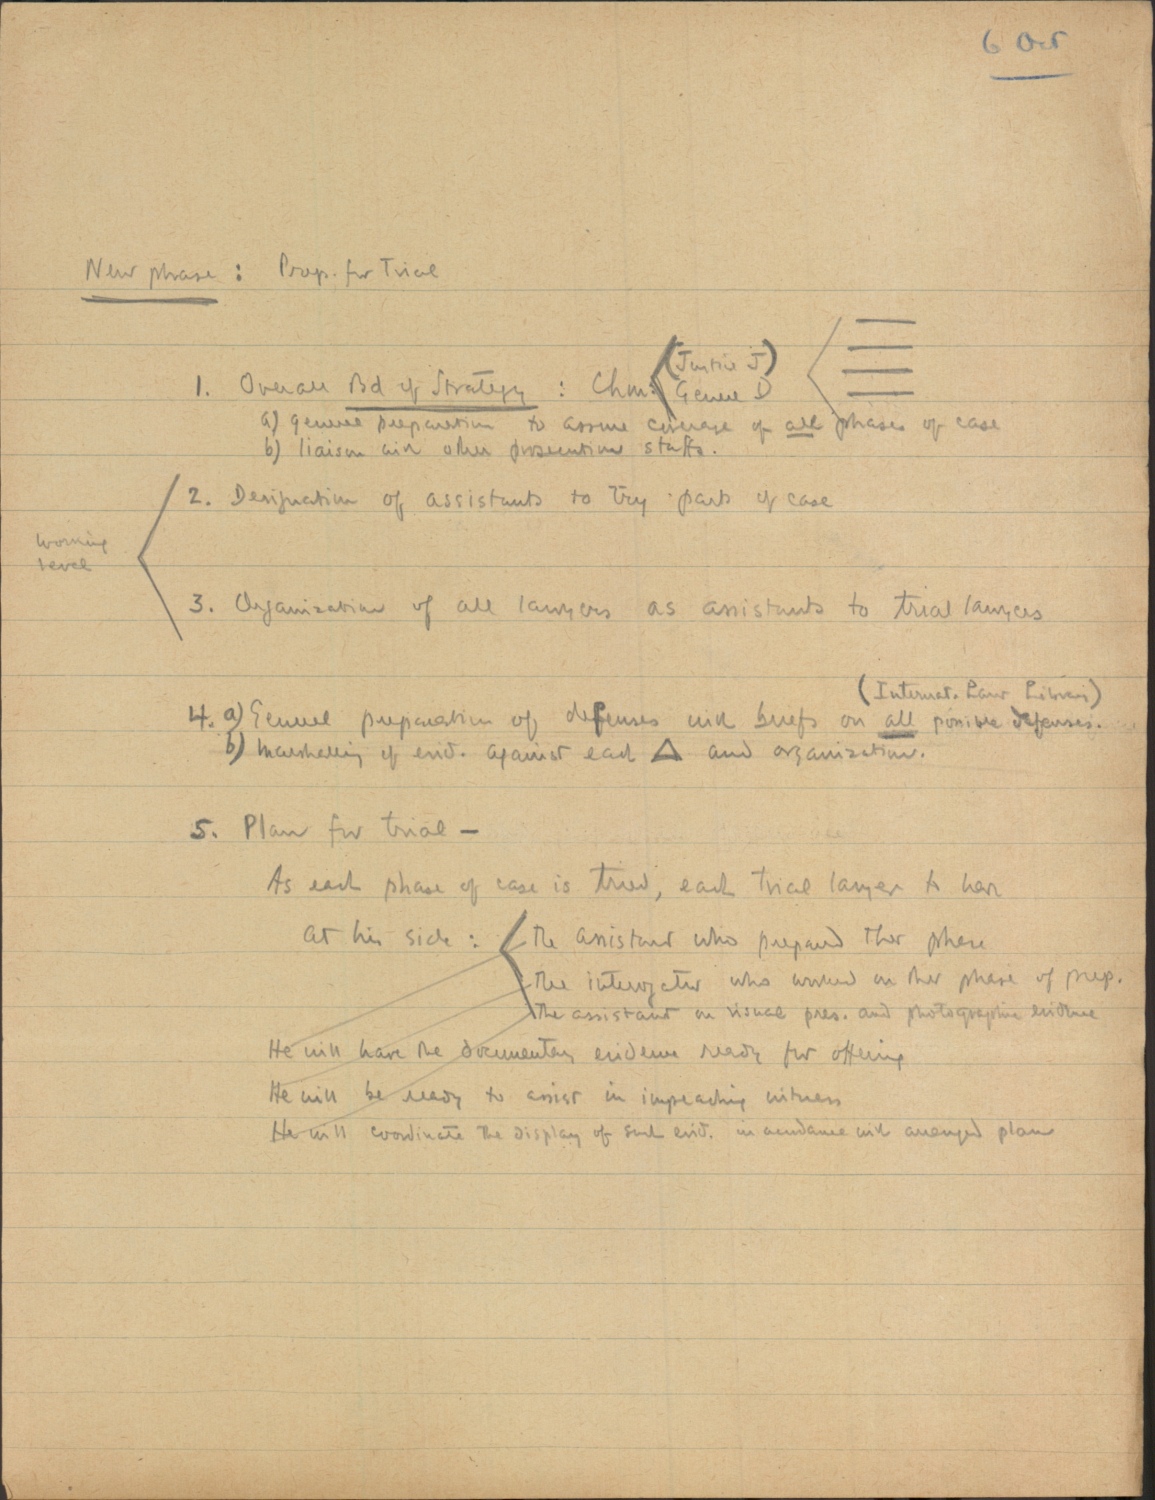 6 Oct
New phase : Prep. for Trial
(Justice J)
1. Overall Bd of Strategy : Chm: General D
a) general preparation to assure coverage of all phases of case
b) liaison with other prosecution staffs.
2. Designation of assistants to try parts of case
working
level
3. Organization of all lawyers as assistants to trial lawyers
(Internat. Law Library)
4. a) General preparation of defenses with briefs on all possible defenses.
b) Marshalling of evid. against each Δ and organization.
5. Plan for trial —
As each phase of case is tried, each trial lawyer to have
at his side : the assistant who prepared that phase
the interrogator who worked on that phase of prep.
the assistant on visual pres. and photographic evidence
He will have the documentary evidence ready for offering
He will be ready to assist in impeaching witness
He will coordinate the display of such evid. in accordance with arranged plan